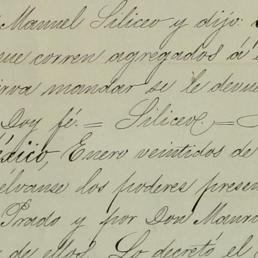 Manuel Siliceo y dijo:
que corren agregados á
sirva mandar se le devue
Doy fé. = Siliceo. =
éxico, Enero veintidos de
élvanse los poderes presen
Prado y por Don Manu
de ellos. Lo decretó el